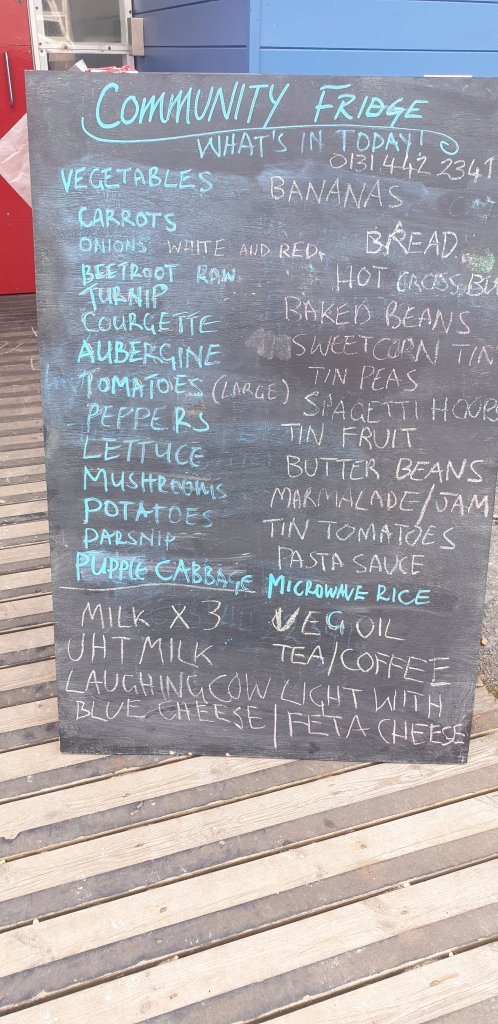 COMMUNITY FRIDGE
WHAT'S IN TODAY!
0131 442 2341
VEGETABLES
CARROTS
ONIONS WHITE AND RED
BEETROOT RAW
TURNIP
COURGETTE
AUBERGINE
TOMATOES (LARGE)
PEPPERS
LETTUCE
MUSHROOMS
POTATOES
PARSNIP
PUPPLE CABBAGE
BANANAS
BREAD
HOT CROSS BU
BAKED BEANS
SWEETCORN TIN
TIN PEAS
SPAGETTI HOOPS
TIN FRUIT
BUTTER BEANS
MARMALADE/JAM
TIN TOMATOES
PASTA SAUCE
MICROWAVE RICE
MILK X 3
VEG OIL
UHT MILK
TEA/COFFEE
LAUGHING COW LIGHT WITH
BLUE CHEESE / FETA CHEESE